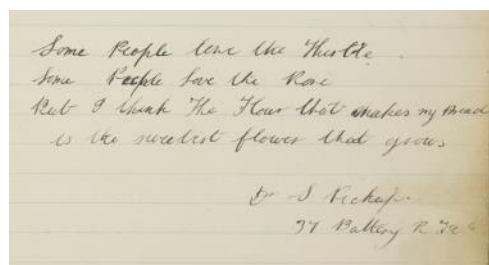 Some People love the Thistle
Some People love the Rose
But I think The Flour that makes my Bread
is the sweetest flower that grows
Dr S Pickup.
37 Battery R.F.A